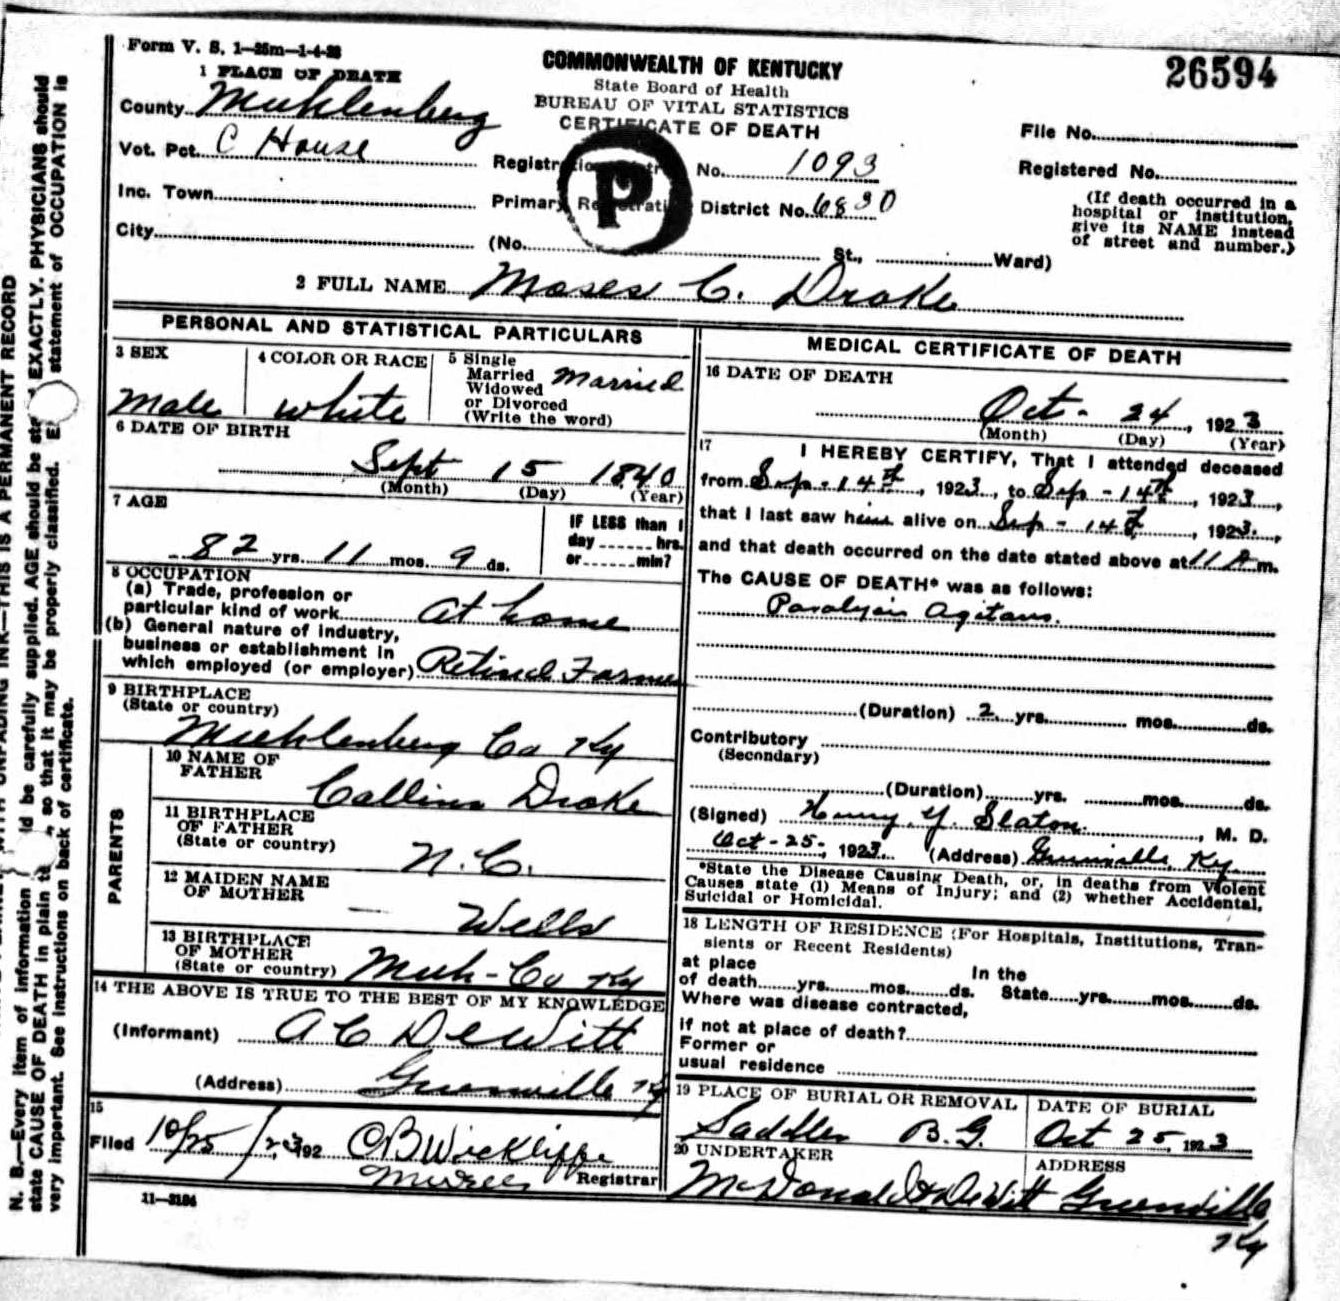 Form V. S. 1—25m—1-4-23
COMMONWEALTH OF KENTUCKY
State Board of Health
BUREAU OF VITAL STATISTICS
CERTIFICATE OF DEATH
26594
1 PLACE OF DEATH
County Muhlenberg
Vot. Pct. C House
Inc. Town
City
Registration District No. 1093
Primary Registration District No. 6830
P
(No. St., Ward)
File No.
Registered No.
(If death occurred in a
hospital or institution,
give its NAME instead
of street and number.)
2 FULL NAME Moses C. Drake
PERSONAL AND STATISTICAL PARTICULARS
3 SEX
Male
4 COLOR OR RACE
white
5 Single
Married
Widowed
or Divorced
(Write the word)
Married
6 DATE OF BIRTH
Sept 15 1840
(Month) (Day) (Year)
7 AGE
82 yrs. 11 mos. 9 ds.
IF LESS than 1
day ...... hrs.
or ...... min?
8 OCCUPATION
(a) Trade, profession or
particular kind of work At home
(b) General nature of industry,
business or establishment in
which employed (or employer) Retired Farmer
9 BIRTHPLACE
(State or country)
Muhlenberg Co Ky
PARENTS
10 NAME OF
FATHER
Collins Drake
11 BIRTHPLACE
OF FATHER
(State or country)
N.C.
12 MAIDEN NAME
OF MOTHER
— Wells
13 BIRTHPLACE
OF MOTHER
(State or country) Muh-Co Ky
14 THE ABOVE IS TRUE TO THE BEST OF MY KNOWLEDGE
(Informant) A C DeWitt
(Address) Greenville Ky
15
Filed 10/25/23 192 C B Wickliffe
Registrar
11—3184
MEDICAL CERTIFICATE OF DEATH
16 DATE OF DEATH
Oct - 24, 1923
(Month) (Day) (Year)
17 I HEREBY CERTIFY, That I attended deceased
from Sep - 14th, 1923, to Sep - 14th, 1923,
that I last saw him alive on Sep - 14th, 1923,
and that death occurred on the date stated above at 11 A m.
The CAUSE OF DEATH* was as follows:
Paralysis Agitans.
(Duration) 2 yrs. mos. ds.
Contributory
(Secondary)
(Duration) yrs. mos. ds.
(Signed) Henry Y. Slaton, M. D.
Oct-25-, 1923 (Address) Greenville, Ky.
*State the Disease Causing Death, or, in deaths from Violent
Causes state (1) Means of Injury; and (2) whether Accidental,
Suicidal or Homicidal.
18 LENGTH OF RESIDENCE (For Hospitals, Institutions, Tran-
sients or Recent Residents)
at place In the
of death yrs. mos. ds. State yrs. mos. ds.
Where was disease contracted,
if not at place of death?
Former or
usual residence
19 PLACE OF BURIAL OR REMOVAL
Saddler B.G.
DATE OF BURIAL
Oct 25, 1923
20 UNDERTAKER
McDonald & DeWitt
ADDRESS
Greenville
Ky
N. B.—Every item of information should be carefully supplied. AGE should be EXACTLY. PHYSICIANS should
state CAUSE OF DEATH in plain so that it may be properly classified. statement of OCCUPATION is
very important. See instructions on back of certificate.
INK—THIS IS A PERMANENT RECORD